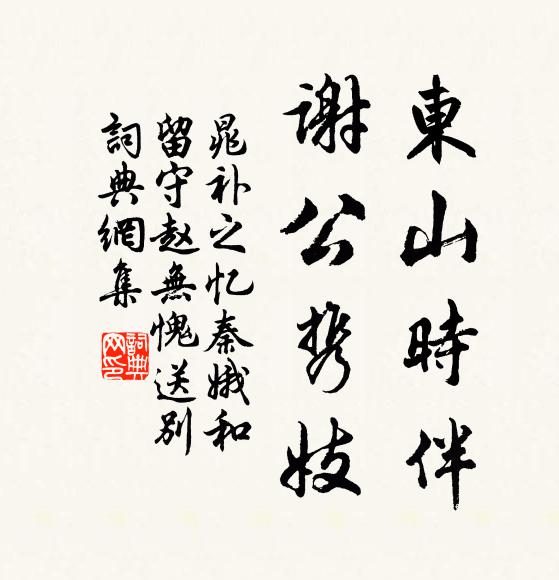 東山時伴
謝公携妓
晁补之忆秦娥和
留守赵無愧送别
詞典網集
詞典網印